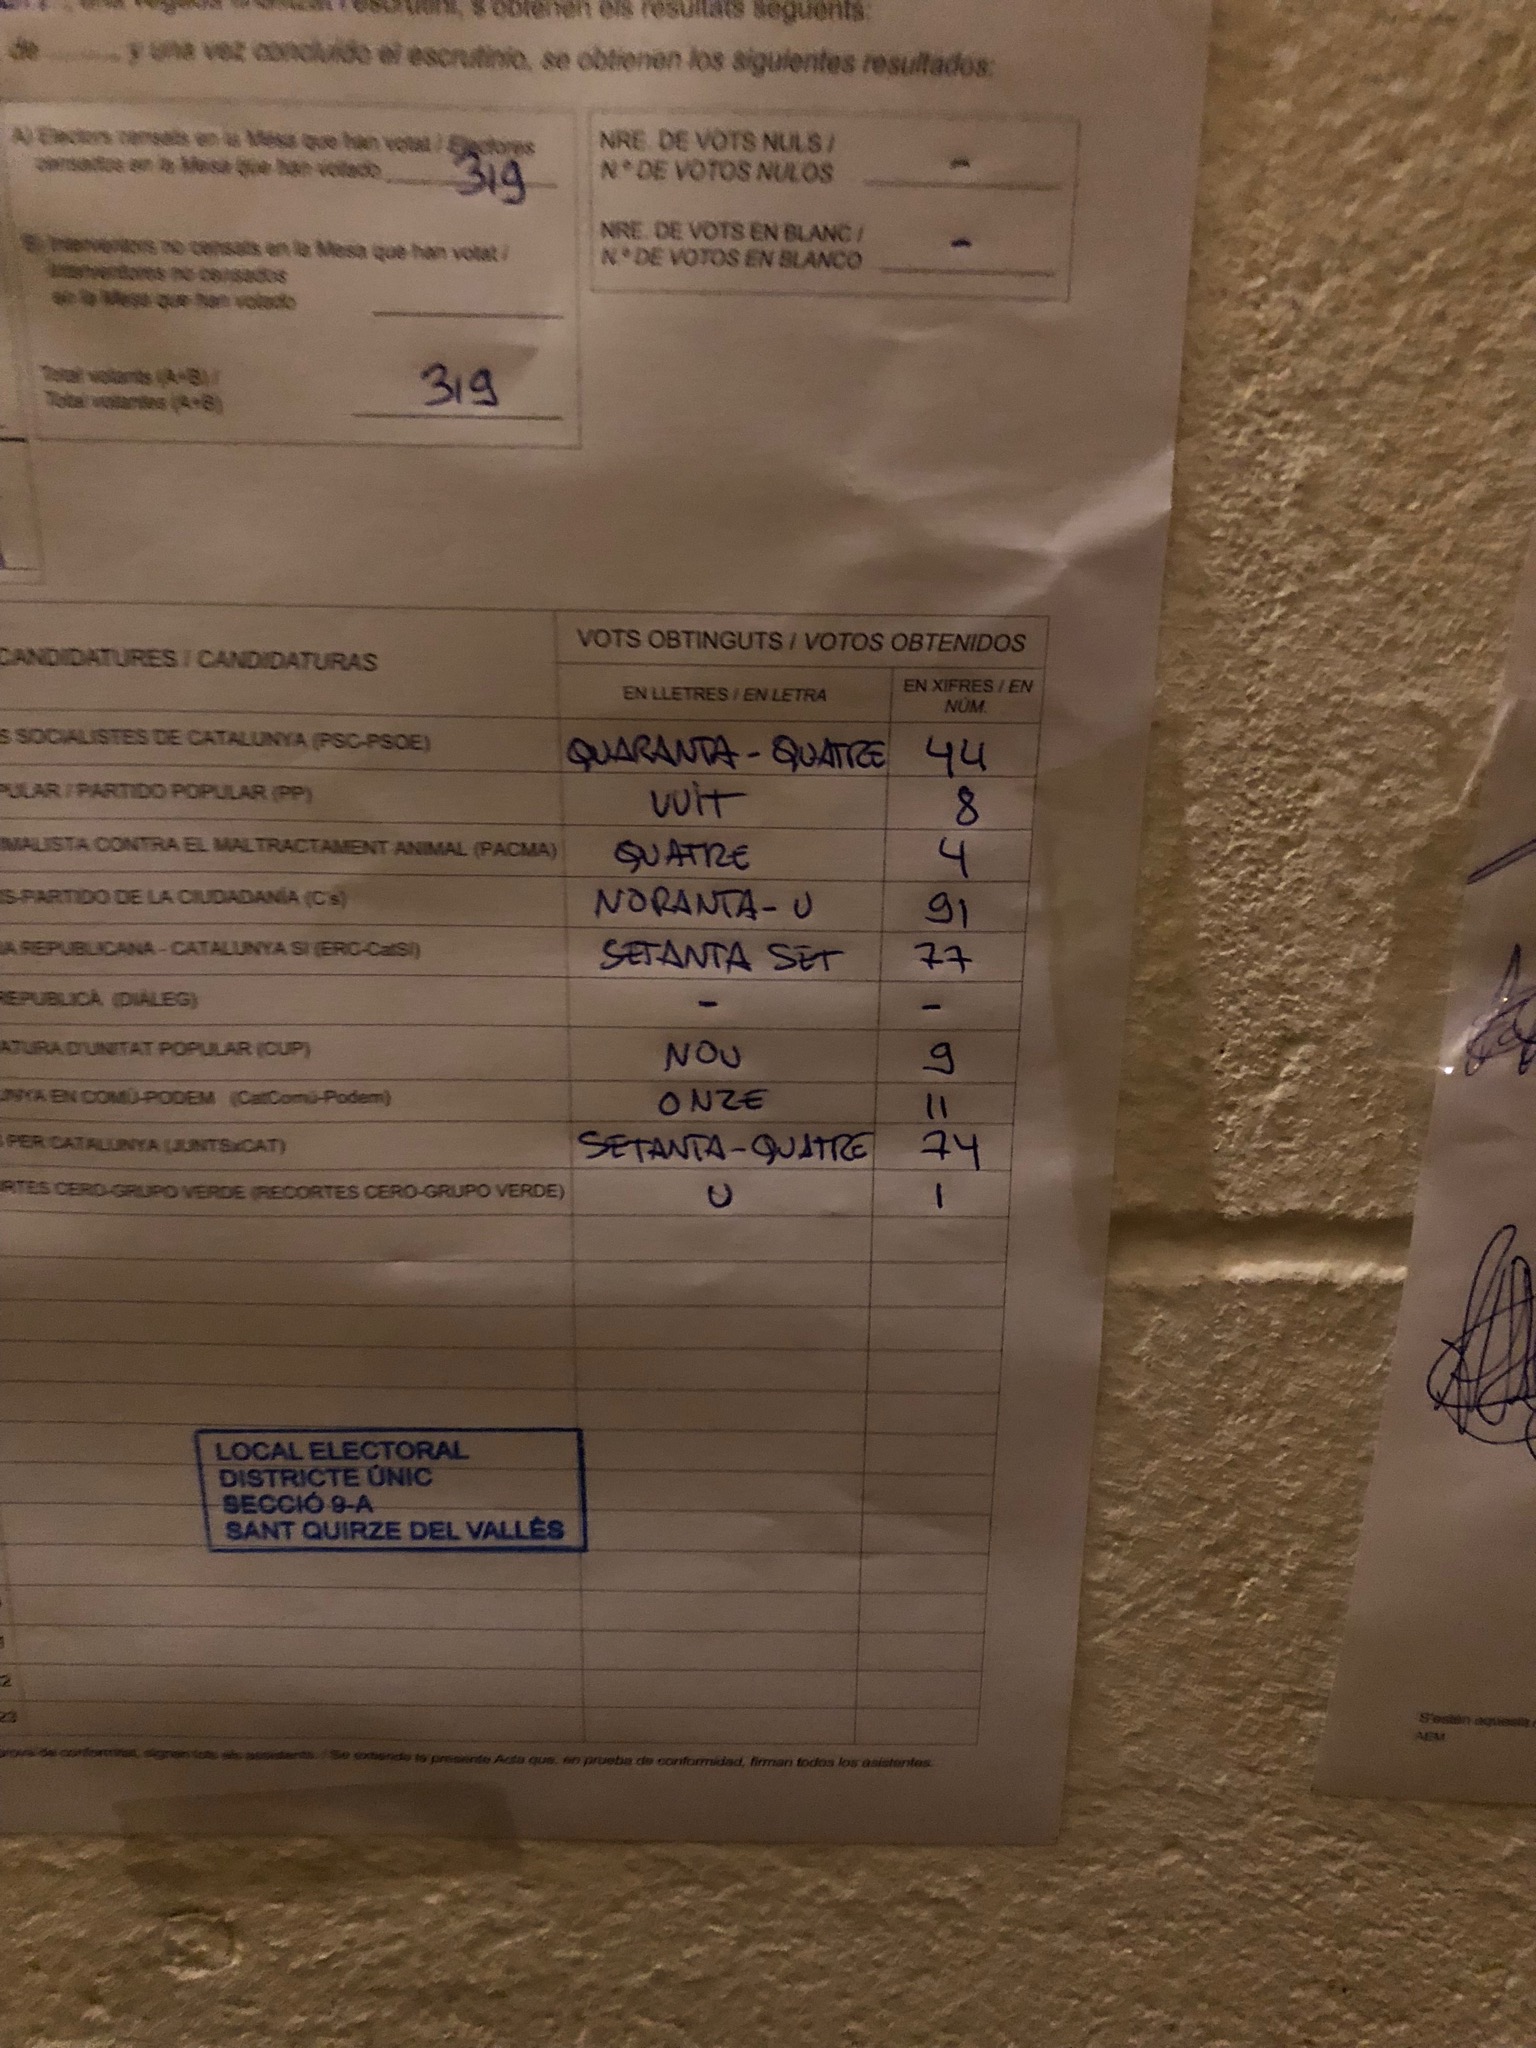 una regada finalitzat l'escrutini, s'obtenen els resultats següents:
de ........, y una vez concluido el escrutinio, se obtienen los siguientes resultados:
A) Electors censats en la Mesa que han votat / Electores
censados en la Mesa que han votado 319
B) Interventors no censats en la Mesa que han votat /
Interventores no censados
en la Mesa que han votado
Total votants (A+B) /
Total votantes (A+B) 319
NRE. DE VOTS NULS /
N.º DE VOTOS NULOS -
NRE. DE VOTS EN BLANC /
N.º DE VOTOS EN BLANCO -
CANDIDATURES / CANDIDATURAS
VOTS OBTINGUTS / VOTOS OBTENIDOS
EN LLETRES / EN LETRA
EN XIFRES / EN
NÚM.
S SOCIALISTES DE CATALUNYA (PSC-PSOE) QUARANTA-QUATRE 44
PULAR / PARTIDO POPULAR (PP) VUIT 8
IMALISTA CONTRA EL MALTRACTAMENT ANIMAL (PACMA) QUATRE 4
S-PARTIDO DE LA CIUDADANÍA (C's) NORANTA-U 91
A REPUBLICANA - CATALUNYA SÍ (ERC-CatSí) SETANTA SET 77
REPUBLICÀ (DIÀLEG) - -
ATURA D'UNITAT POPULAR (CUP) NOU 9
UNYA EN COMÚ-PODEM (CatComú-Podem) ONZE 11
PER CATALUNYA (JUNTSxCAT) SETANTA-QUATRE 74
RTES CERO-GRUPO VERDE (RECORTES CERO-GRUPO VERDE) U 1
LOCAL ELECTORAL
DISTRICTE ÚNIC
SECCIÓ 9-A
SANT QUIRZE DEL VALLÈS
2
23
de conformitat, signen tots els assistents. / Se extiende la presente Acta que, en prueba de conformidad, firman todos los asistentes.
S'estén aquesta